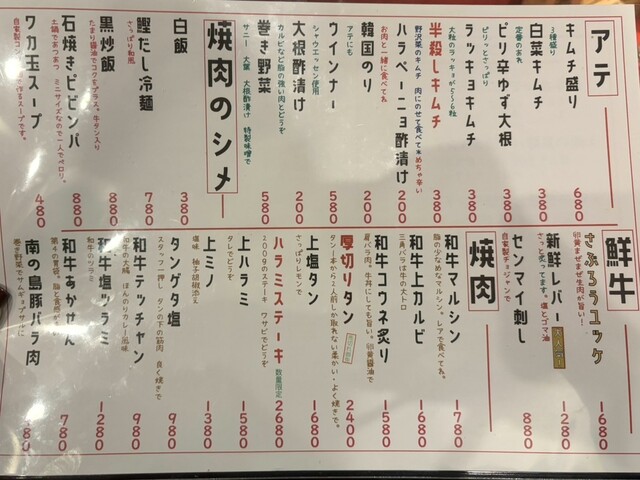 アテ
キムチ盛り
3種盛り
680
白菜キムチ
定番の末れ
380
ピリ辛ゆず大根
ピリッとさっぱり
380
ラッキョキムチ
大粒のラッキョが5〜6粒
380
半殺しキムチ
野沢菜のキムチ 肉にのせて食べて末めちゃ辛い
380
ハラペーニョ酢漬け
お肉と一緒に食べてね
200
韓国のり
200
ウインナー
アテにも
シャウエッセン使用
500
大根酢漬け
カルビなど脂の強い肉とどうぞ
200
巻き野菜
サニー 大葉 大根酢漬け 特製味噌で
580
焼肉のシメ
白飯
380
鰹だし冷麺
さっぱり和風
780
黒炒飯
たまり醤油でコクをプラス。牛タン入り
880
石焼きビビンバ
土鍋であつあつ ミニサイズなので一人でペロリ。
880
ワカ玉スープ
480
鮮牛
さぶろうユッケ
卵黄まぜまぜ生肉が旨い!
1680
新鮮レバー
さっと炙ってます。塩とゴマ油
1280
センマイ刺し
自家製チョジャンで
880
焼肉
和牛マルシン
脂の少なめなマルシン。レアで食べてね。
1780
和牛上カルビ
三角バラは牛の大トロ
1680
和牛コウネ炙り
肩バラ肉。牛丼にしても旨い。卵黄醤油で
1580
厚切りタン
タン1本から2人前しか取れない柔かい・よく焼きで。
2400
上塩タン
さっぱりレモンで
1680
ハラミステーキ 数量限定
200gのステーキ ワサビでどうぞ
2680
上ハラミ
タレでどうぞ
1580
上ミノ
塩味 柚子胡椒添え
1380
タンゲタ塩
スタッフ一押し タンの下の筋肉 良く焼きで
980
和牛テッチャン
和牛の大腸 ほんのりカレー風味
980
和牛塩ツラミ
和牛のツラミ
1280
和牛あかせん
第4の胃袋。脂と食感が
780
南の島豚バラ肉
巻き野菜でサムギョプサルに